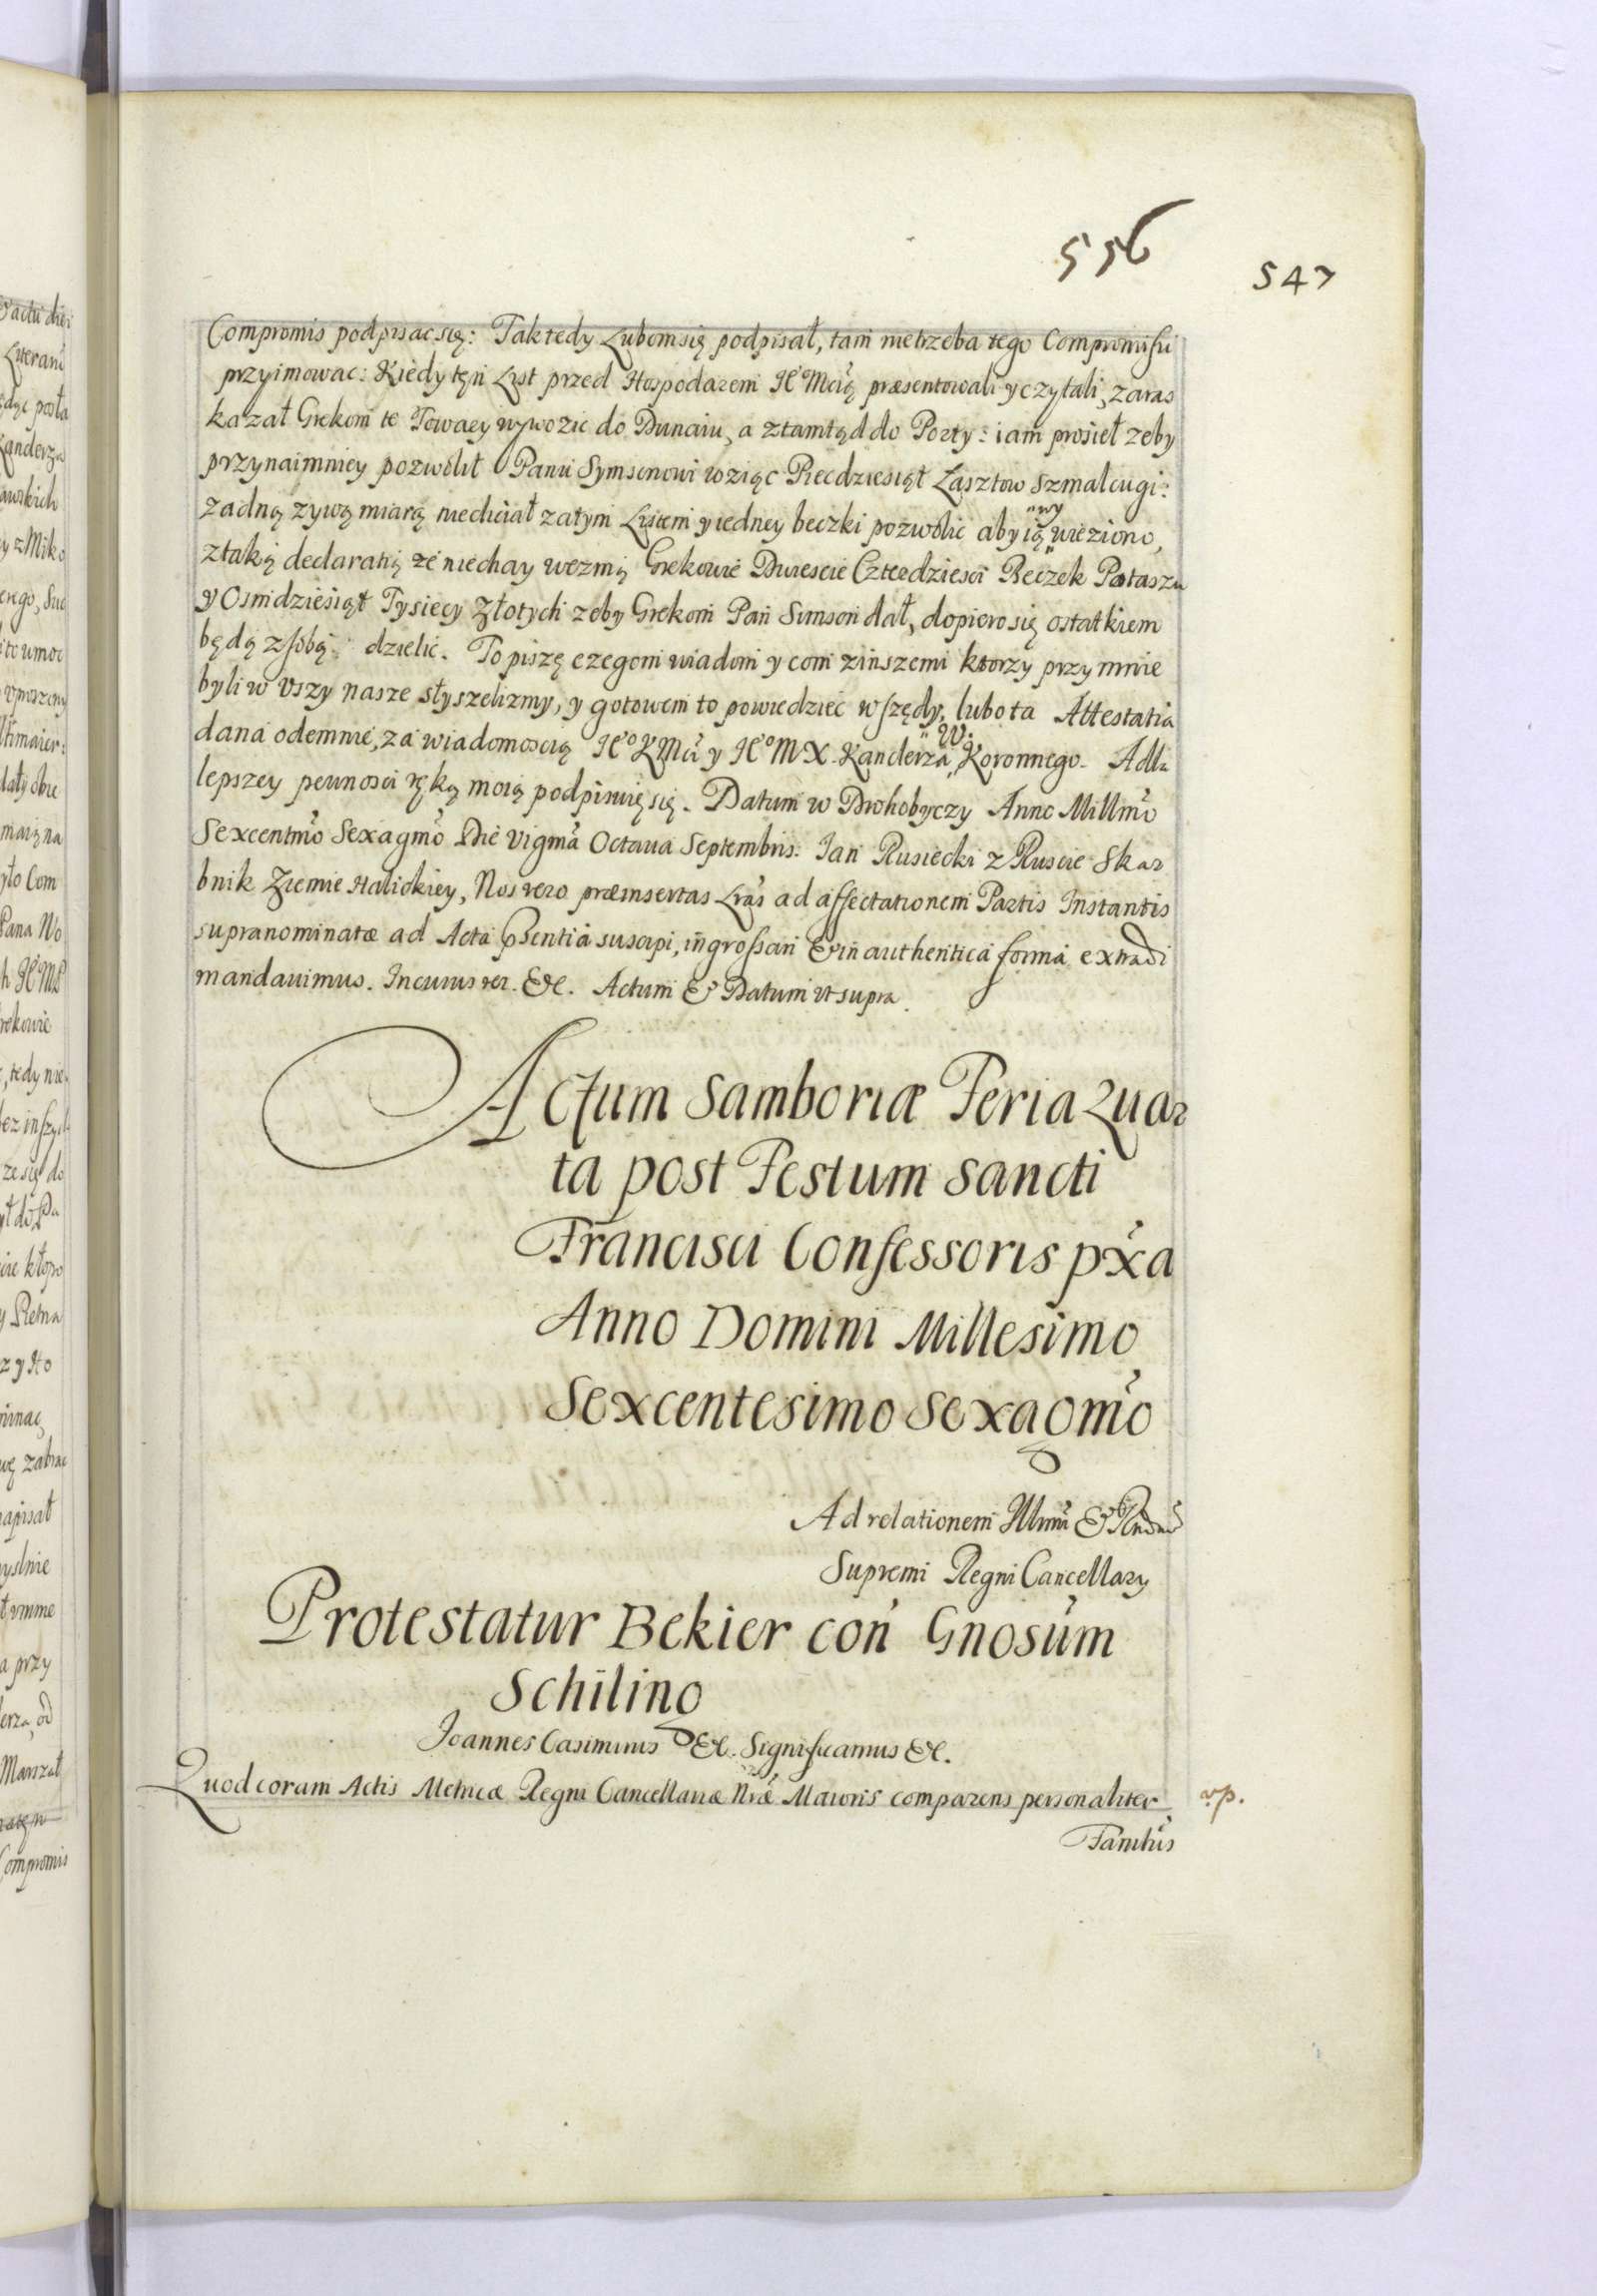 556
547
Compromis podpisac się: Tak tedy Lubom się podpisał, tam nietrzeba tego Compromisu
przyimowac: Kiedy tęn List przed Hospodarem JeoMcią præsentowali y czytali, zaras
kazał Grekom te Towary wywozic do Dunaiu, a ztamtąd do Porty: iam prosieł zeby
przynaimniey pozwolił Panu Symsonowi wziąc Piecdziesiąt Łasztow Szmalcugi:
zadną zywą miarą niechciał zatym Listem y iedney beczki pozwolic aby ią "wy" wieziono,
ztaką declaratią ze niechay wezmą Grekowie Dwiescie Czterdziesci Beczek Potaszu
y Osmdziesiąt Tysiecy Złotych zeby Grekom Pan Simson dał, dopiero się ostatkiem
będą z sobą dzielic. To piszę czegom wiadom y com zinszemi ktorzy przy mnie
byli w Vszy nasze słyszelizmy, y gotowem to powiedziec wszędy, lubo ta Attestatia
dana odemnie, za wiadomoscią JeoKMci y JeoMX. Kanclerza "W." Koronnego. A dla
lepszey pewnosci ręką moią podpisuię się. Datum w Drohobyczy Anno Millmo
Sexcentmo Sexagmo Die Vigma Octaua Septembris. Jan Rusiecki z Rusca Skar
bnik Ziemie Halickiey, Nos vero præinsertas Lras ad affectationem Partis Instantis
supranominatæ ad Acta pñsentia suscipi, ingrossari & in authentica forma extradi
mandauimus. In cuius rei. &c. Actum & Datum vt supra.
Actum Samboriæ Feria Quar
ta post Festum Sancti
Francisci Confessoris pxa
Anno Domini Millesimo
Sexcentesimo Sexagmo
Ad relationem Illmi & Rndmi
Supremi Regni Cancellary
Protestatur Bekier con Gnosum
Schiling
Joannes Casimirus &c. Significamus &c.
Quod coram Actis Metricæ Regni Cancellariæ Nræ Maioris comparens personaliter
Famtus